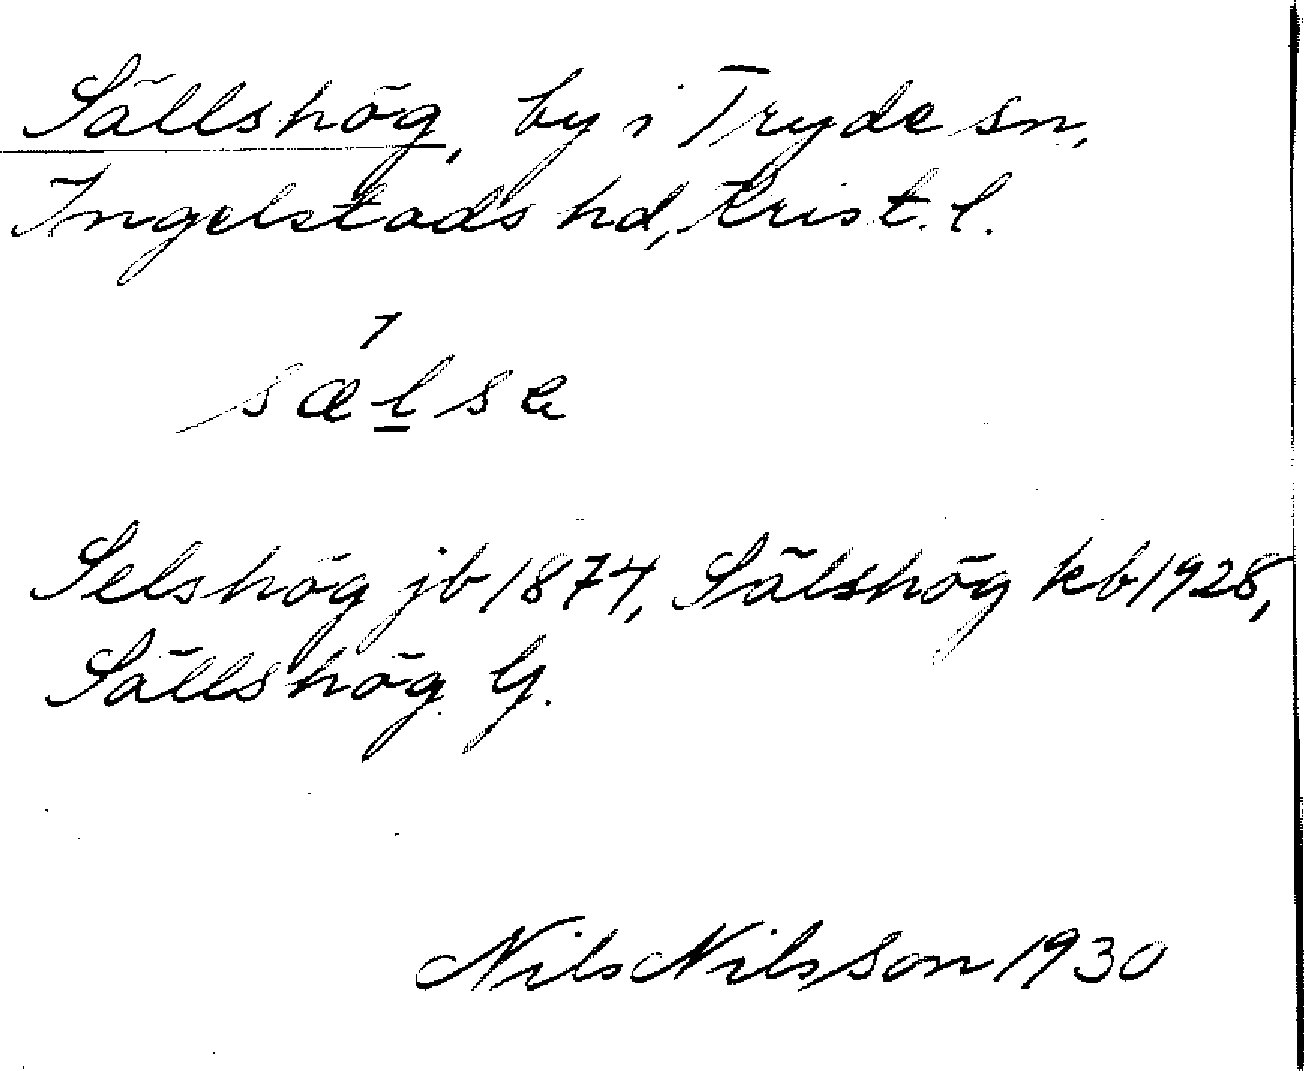 Sällshög, by i Tryde sn,
Ingelstads hd, Krist. l.
Selshög jb 1874, Sälshög kb 1928,
Sällshög G.
Nils Nilsson 1930